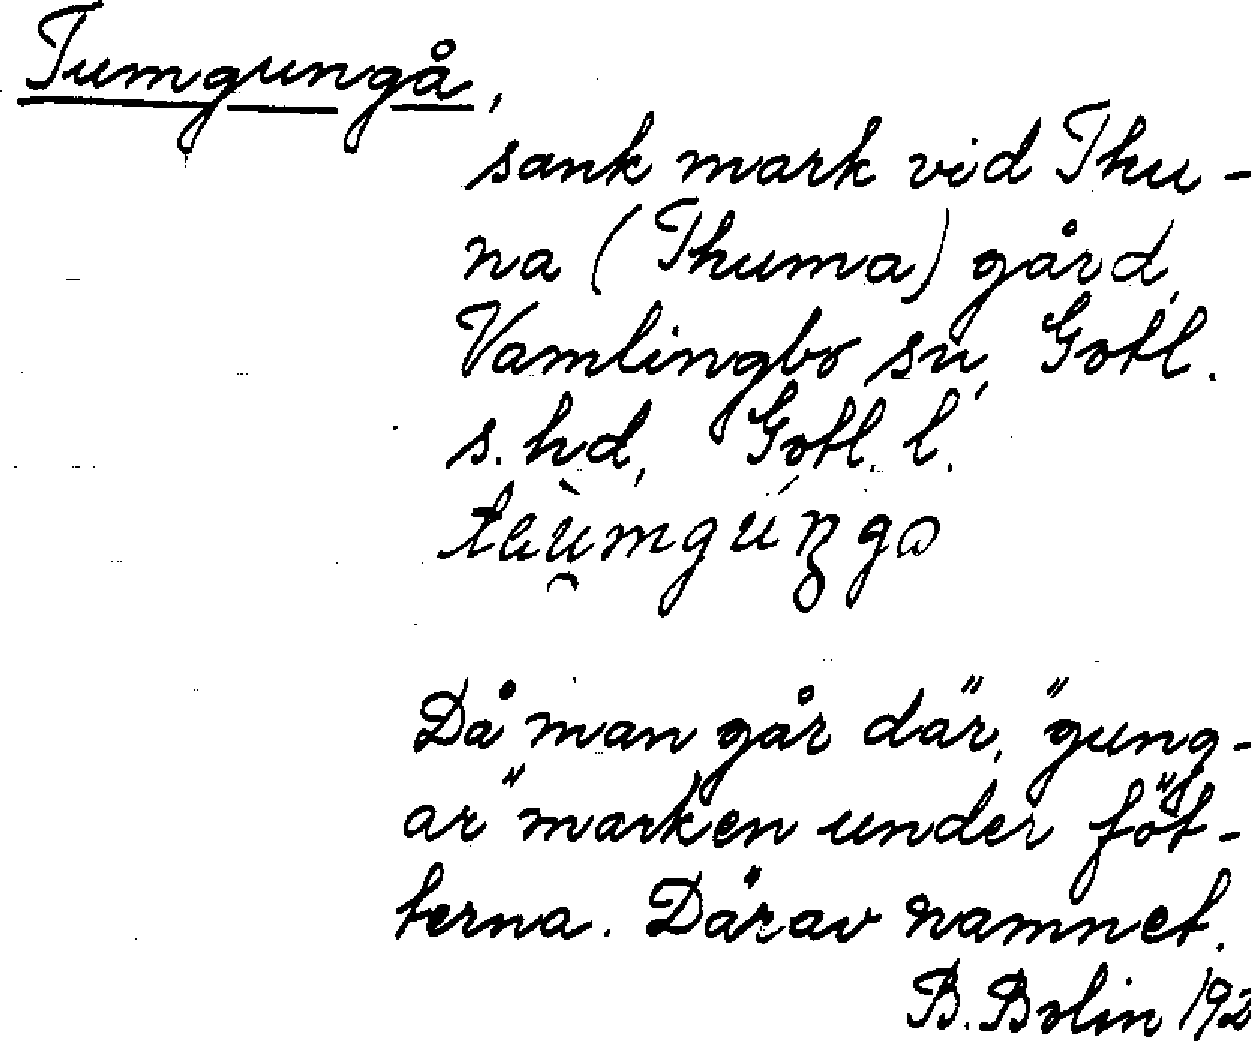 Tumgungå,
sank mark vid Thu-
na (Thuma) gård,
Vamlingbo sn, Gotl.
s. hd, Gotl. l.
Då man går där, "gung-
ar" marken under föt-
terna. Därav namnet.
B. Bolin 192